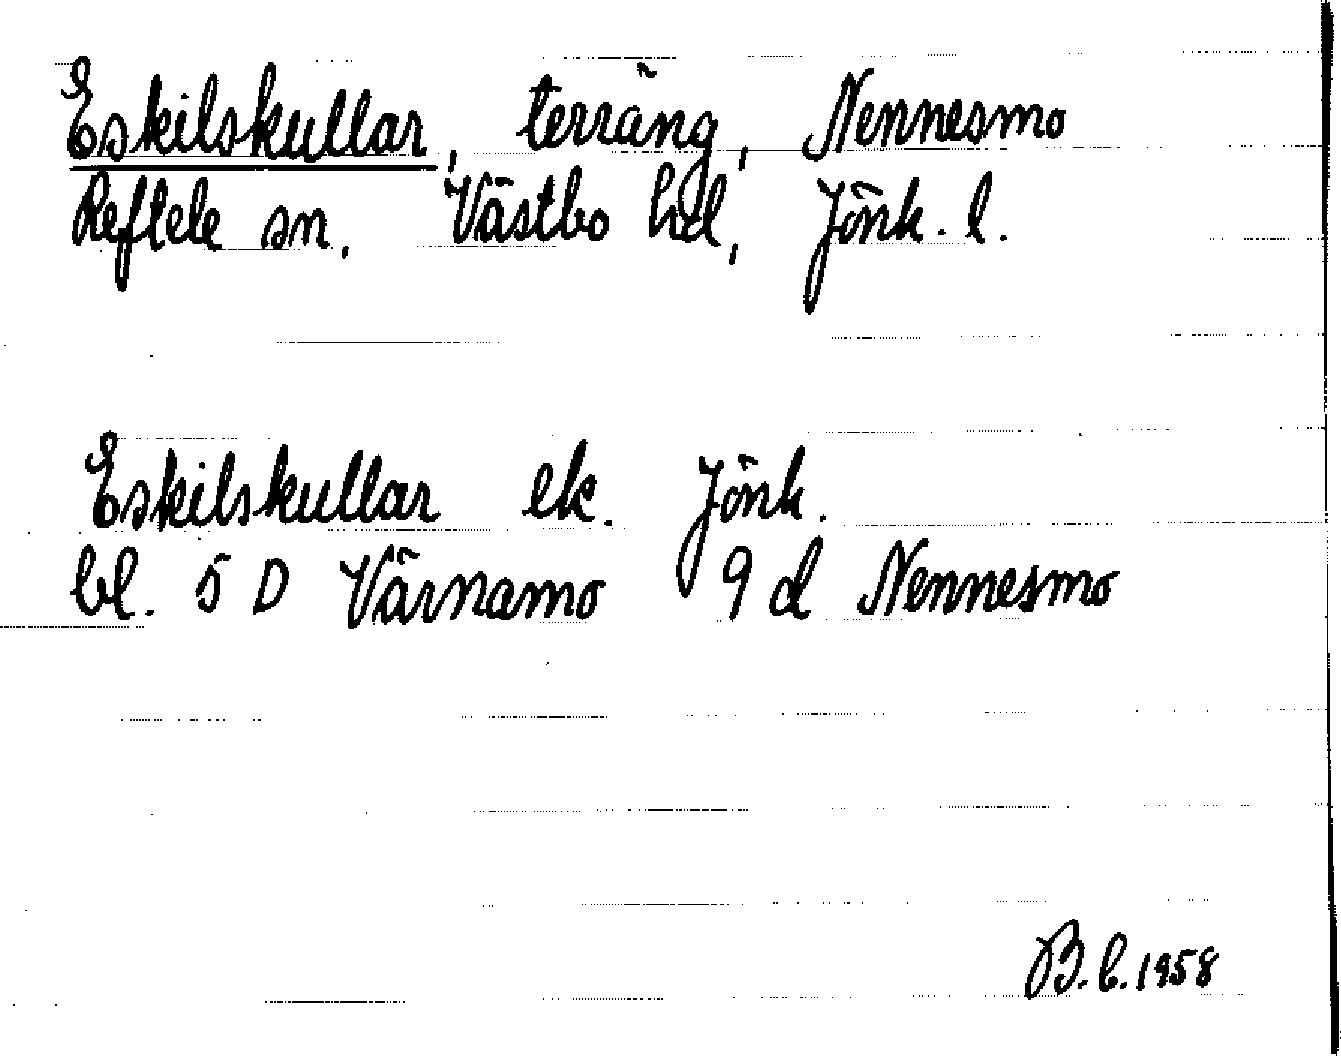 Eskilskullar, terräng, Nennesmo
Reftele sn, Västbo hd, Jönk. l.
Eskilskullar ek. Jönk.
bl. 5 D Värnamo 9 d Nennesmo
B.b. 1958